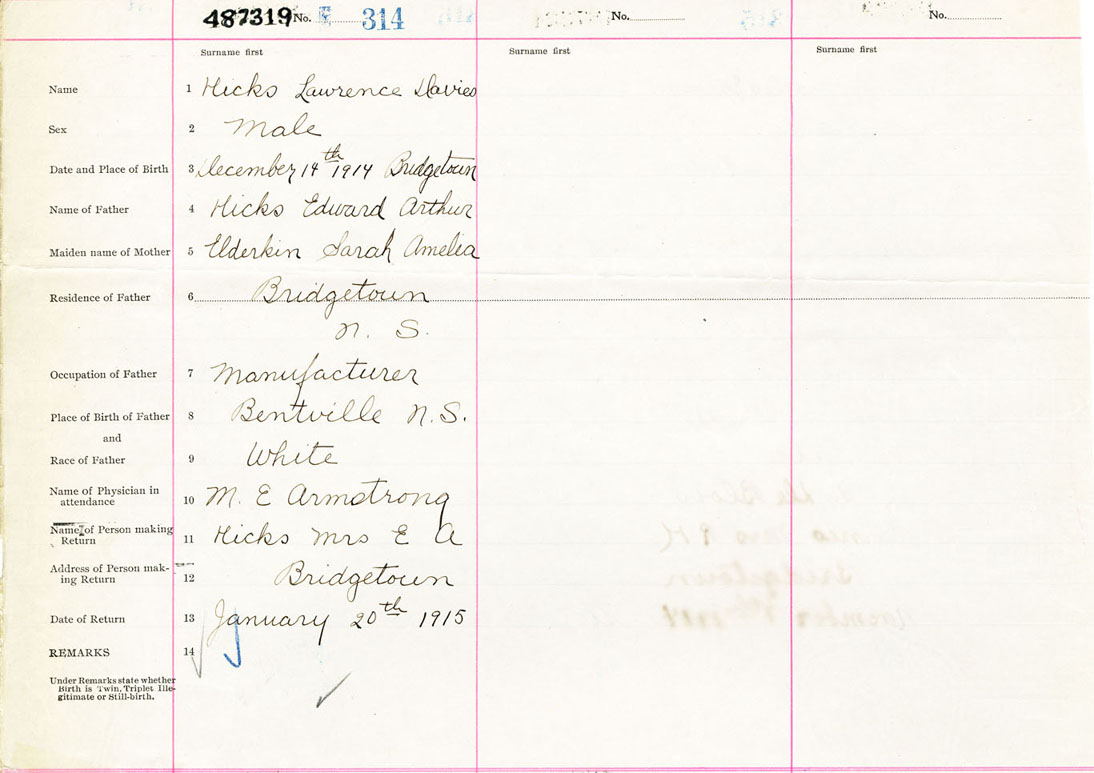 487319 No. 314 No. No.
Surname first Surname first Surname first
Name 1 Hicks Lawrence Davies
Sex 2 Male
Date and Place of Birth 3 December 14th 1914 Bridgetown
Name of Father 4 Hicks Edward Arthur
Maiden name of Mother 5 Elderkin Sarah Amelia
Residence of Father 6 Bridgetown
N. S.
Occupation of Father 7 Manufacturer
Place of Birth of Father 8 Bentville N.S.
and
Race of Father 9 White
Name of Physician in
attendance 10 M. E Armstrong
Name of Person making
Return 11 Hicks Mrs E A
Address of Person mak-
ing Return 12 Bridgetown
Date of Return 13 January 20th 1915
REMARKS 14
Under Remarks state whether
Birth is Twin, Triplet Ille-
gitimate or Still-birth.